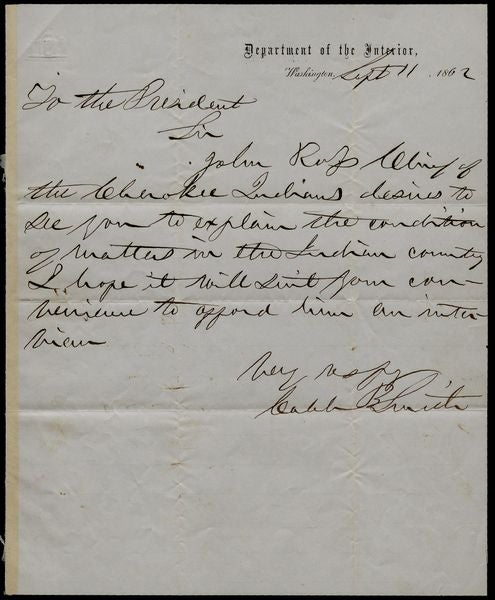 Department of the Interior,
Washington, Sept 11 1862
To the President
Sir
John Ross Chief of
the Cherokee Indians desires to
see you to explain the condition
of matters in the Indian country
I hope it will suit your con-
venience to afford him an inter-
view
Very respy
Caleb B Smith